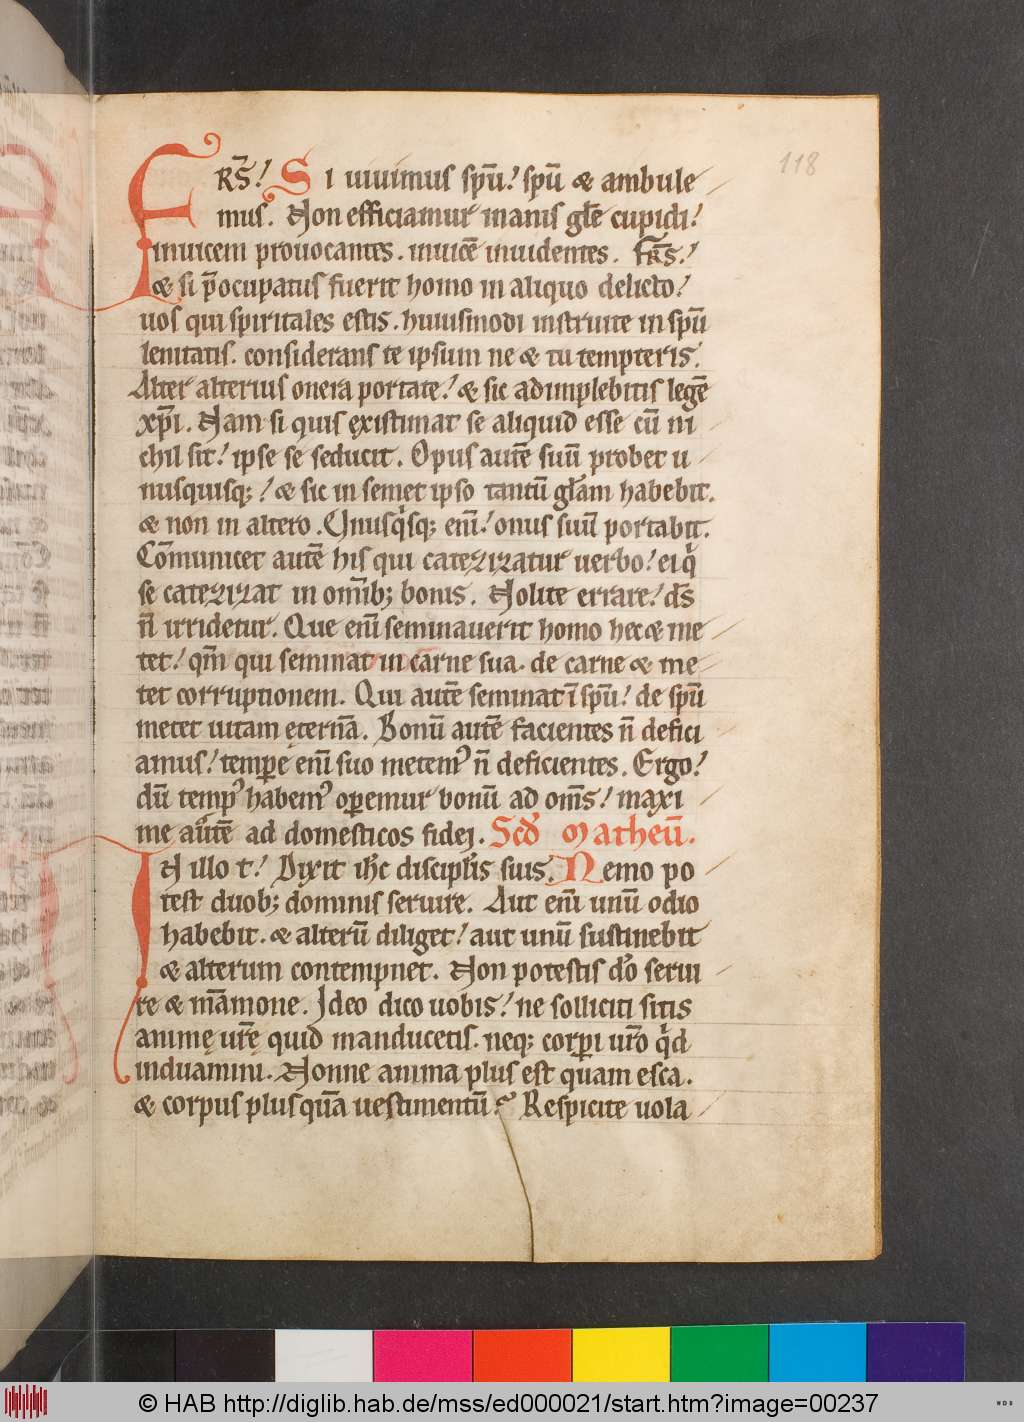 118
FRS̄! Si uiuimus sp̄u! sp̄u & ambule
mus. Non efficiamur inanis gl̄e cupidi!
inuicem prouocantes. inuicē inuidentes. Fr̄s!
& si p̄ocupatus fuerit homo in aliquo delicto!
uos qui spiritales estis. huiusmodi instruite in sp̄u
lenitatis. considerans te ipsum ne & tu tempteris.
Alter alterius onera portate! & sic adimplebitis legē
xp̄i. Nam si quis existimat se aliquid esse cū ni
chil sit! ipse se seducit. Opus autē suū probet u
nusquisq;! & sic in semet ipso tantū gl̄am habebit.
& non in altero. Unusq̇sq; eni̅! onus suū portabit.
Com̄unicet autē his qui catezizatur uerbo! ei q̇
se catezizat in om̄ib; bonis. Nolite errare! d̄s
n̄ irridetur. Que eni̅ seminauerit homo hec & me
tet! qm̄ qui seminat in carne sua. de carne & me
tet corruptionem. Qui autē seminat ī sp̄u! de sp̄u
metet uitam ęternā. Bonū autē facientes n̄ defici
amus! tempore eni̅ suo metemꝰ n̄ deficientes. Ergo!
dū tempꝰ habemꝰ operemur bonū ad om̄s! maxi
me autē ad domesticos fidei. Scd̄ Matheū.
IN illo t! Dixit ih̄c discipl̄is suis. Nemo po
test duob; dominis seruire. Aut eni̅ unū odio
habebit. & alterū diliget! aut unū sustinebit
& alterum contempnet. Non potestis d̄o serui
re & mām̄one. Ideo dico uobis! ne solliciti sitis
animę ur̄ę quid manducetis. neq; corp̄i ur̄o q̇d
induamini. Nonne anima plus est quam esca.
& corpus plus quā uestimentū? Respicite uola
© HAB http://diglib.hab.de/mss/ed000021/start.htm?image=00237